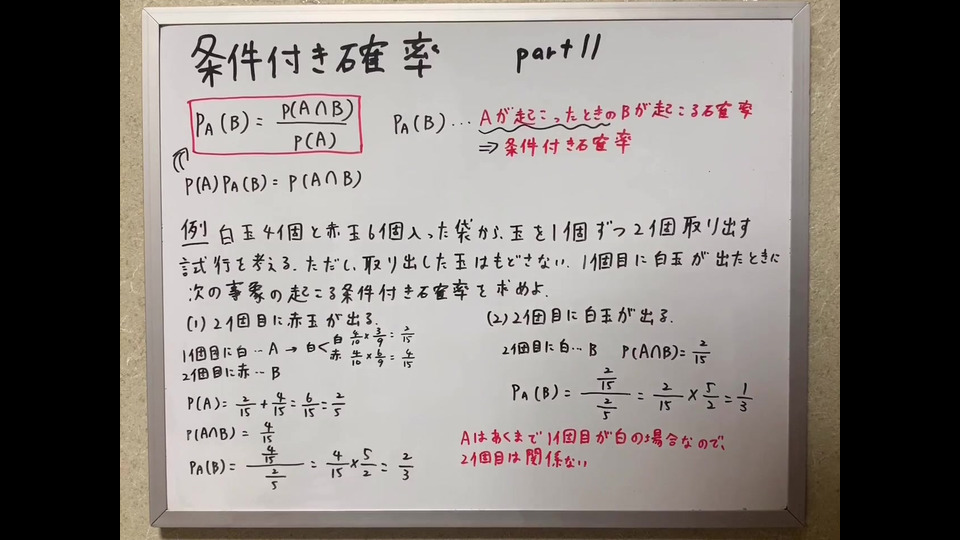 条件付き確率 part11
P_A(B) = P(A∩B)/P(A)
P_A(B)… Aが起こったときのBが起こる確率
⇒ 条件付き確率
P(A)P_A(B) = P(A∩B)
例 白玉4個と赤玉6個入った袋から、玉を1個ずつ2個取り出す
試行を考える. ただし、取り出した玉はもどさない. 1個目に白玉が出たときに
次の事象の起こる条件付き確率を求めよ.
(1) 2個目に赤玉が出る.
1個目に白…A → 白< 白 4/10×3/9=2/15
赤 4/10×6/9=4/15
2個目に赤…B
P(A)= 2/15+4/15=6/15=2/5
P(A∩B)= 4/15
P_A(B)= (4/15)/(2/5) = 4/15×5/2= 2/3
(2) 2個目に白玉が出る.
2個目に白…B P(A∩B)= 2/15
P_A(B)= (2/15)/(2/5) = 2/15×5/2=1/3
Aはあくまで1個目が白の場合なので、
2個目は関係ない